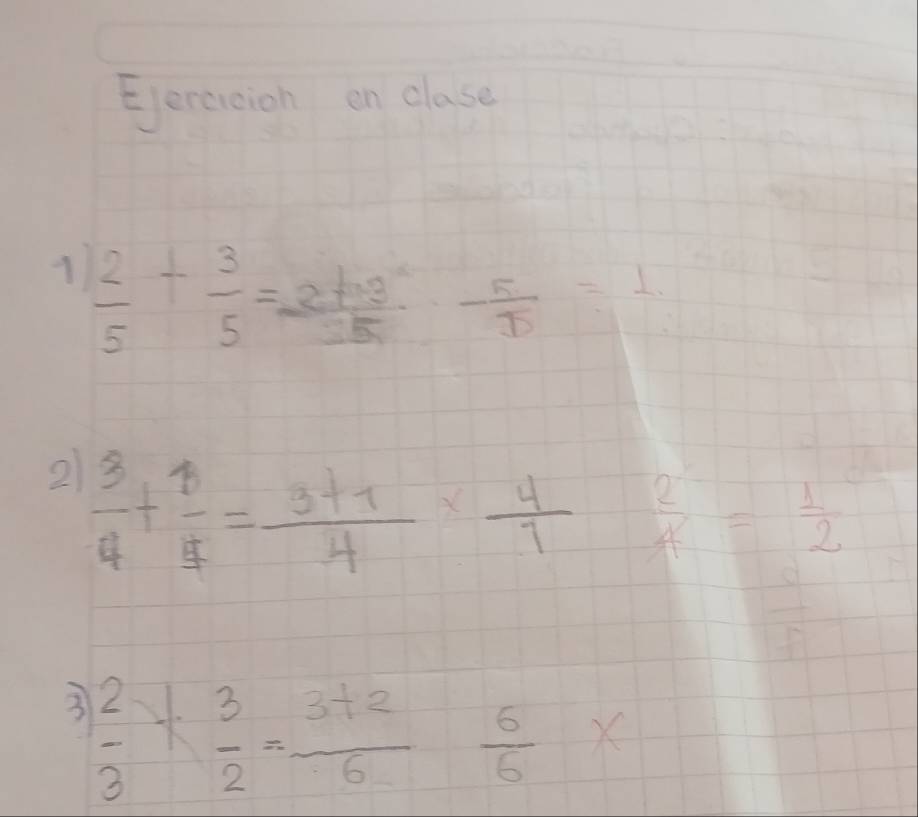 Ejercicion en clase
1) 2/5 + 3/5 = 2+3/5 5/5 = 1.
2) 3/4 + 1/4 = 3+1/4 x 4/1 2/4 = 1/2
3) 2/3 + 3/2 = 3+2/6 6/6 x